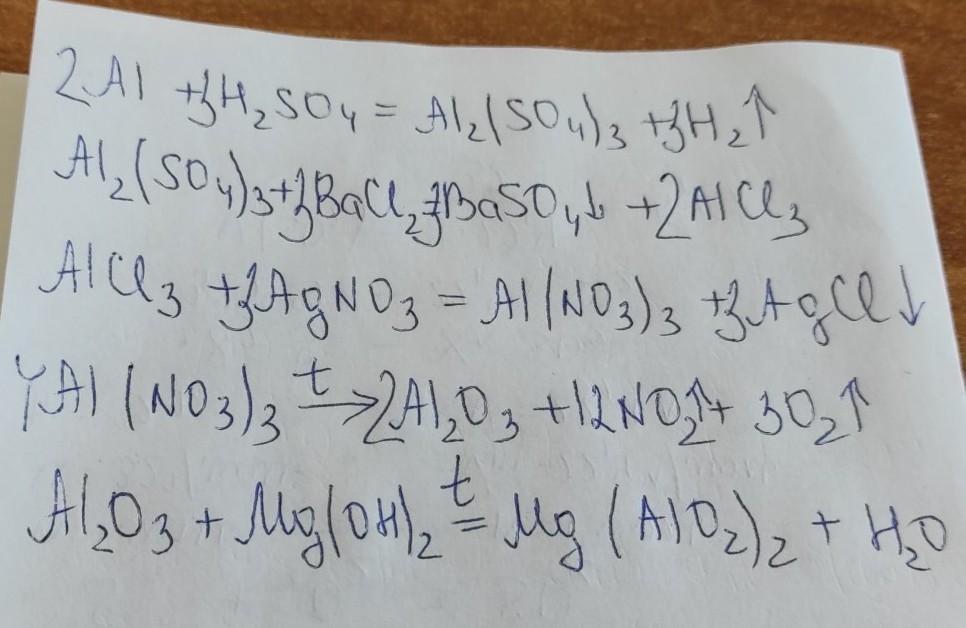 2Al + 3H₂SO₄ = Al₂(SO₄)₃ + 3H₂↑
Al₂(SO₄)₃ + 3BaCl₂ = 3BaSO₄↓ + 2AlCl₃
AlCl₃ + 3AgNO₃ = Al(NO₃)₃ + 3AgCl↓
4Al(NO₃)₃ t→ 2Al₂O₃ + 12NO₂↑ + 3O₂↑
Al₂O₃ + Mg(OH)₂ t= Mg(AlO₂)₂ + H₂O